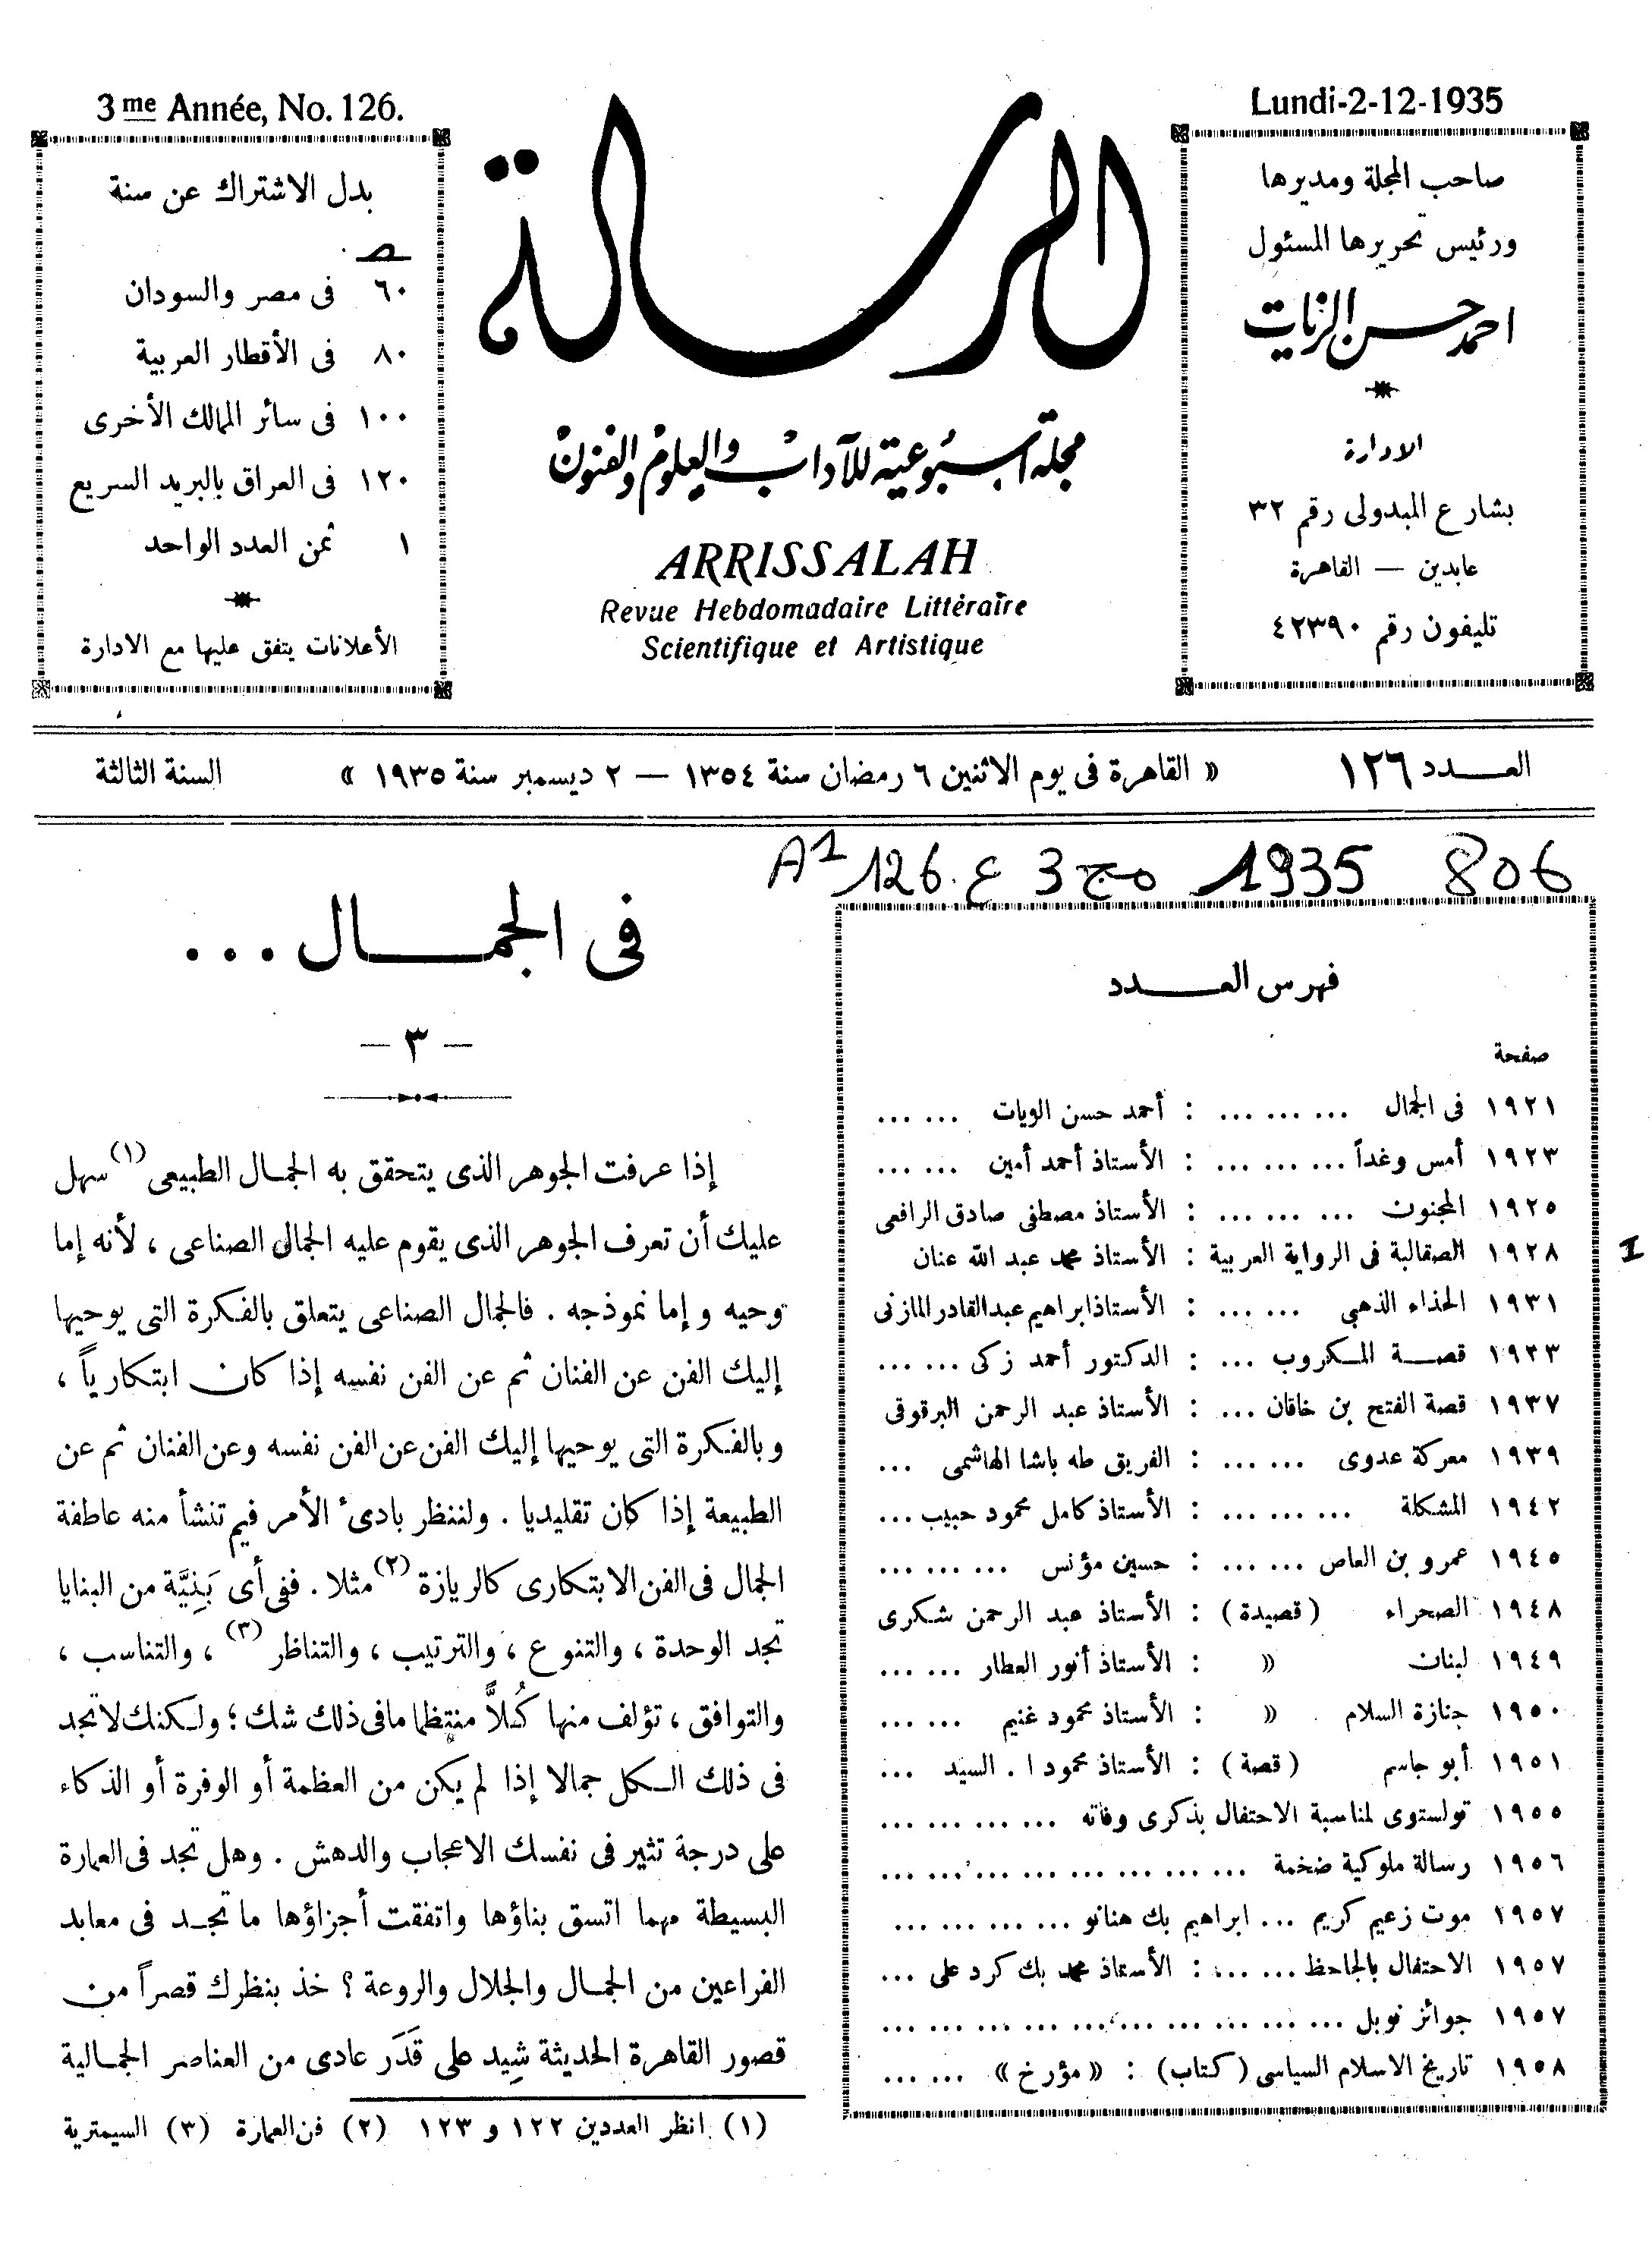 3me Année, No. 126.
Lundi-2-12-1935
صاحب المجلة ومديرها
ورئيس تحريرها المسئول
احمد حسن الزيات
الادارة
بشارع المبدولى رقم ٣٢
عابدين — القاهرة
تليفون رقم ٤٢٣٩٠
الرسالة
مجلة أسبوعية للآداب والعلوم والفنون
ARRISSALAH
Revue Hebdomadaire Littéraire
Scientifique et Artistique
بدل الاشتراك عن سنة
ص
٦٠ فى مصر والسودان
٨٠ فى الأقطار العربية
١٠٠ فى سائر الممالك الأخرى
١٢٠ فى العراق بالبريد السريع
١ ثمن العدد الواحد
الأعلانات يتفق عليها مع الادارة
العـــدد ١٢٦ « القاهرة فى يوم الاثنين ٦ رمضان سنة ١٣٥٤ — ٢ ديسمبر سنة ١٩٣٥ » السنة الثالثة
A1 126 ع 3 مج 1935 806
فهرس العـــدد
صفحة
١٩٢١ فى الجمال ... ... ... : أحمد حسن الويات ... ...
١٩٢٣ أمس وغداً ... ... ... : الأستاذ أحمد أمين ... ...
١٩٢٥ المجنون ... ... ... : الأستاذ مصطفى صادق الرافعى
١٩٢٨ الصقالبة فى الرواية العربية : الأستاذ محمد عبد الله عنان
I
١٩٣١ الحذاء الذهبي ... ... : الأستاذ ابراهيم عبد القادر المازنى
١٩٣٣ قصـــة المـكروب ... : الدكتور أحمد زكى ... ...
١٩٣٧ قصة الفتح بن خاقان ... : الأستاذ عبد الرحمن البرقوقى
١٩٣٩ معركة عدوى ... ... : الفريق طه باشا الهاشمى ...
١٩٤٢ المشكلة ... ... ... : الأستاذ كامل محمود حبيب ...
١٩٤٥ عمرو بن العاص ... ... : حسين مؤنس ... ... ...
١٩٤٨ الصحراء (قصيدة) : الأستاذ عبد الرحمن شكرى
١٩٤٩ لبنان » : الأستاذ أنور العطار ... ...
١٩٥٠ جنازة السلام » : الأستاذ محمود غنيم ... ...
١٩٥١ أبو جاسم (قصة) : الأستاذ محمود ا . السيد ...
١٩٥٥ تولستوى لمناسبة الاحتفال بذكرى وفاته ... ... ... ...
١٩٥٦ رسالة ملوكية ضخمة ... ... ... ... ... ... ... ...
١٩٥٧ موت زعيم كريم ... ابراهيم بك هنانو ... ... ... ...
١٩٥٧ الاحتفال بالجاحظ ... ... : الأستاذ محمد بك كرد على ...
١٩٥٧ جوائز نوبل ... ... ... ... ... ... ... ... ... ...
١٩٥٨ تاريخ الاسلام السياسى (كتاب) : « مؤرخ » ... ...
فى الجمـــال ...
— ٣ —
إذا عرفت الجوهر الذى يتحقق به الجمـال الطبيعى (١) سهل
عليك أن تعرف الجوهر الذى يقوم عليه الجمال الصناعى ، لأنه إما
وحيه وإما نموذجه . فالجمال الصناعى يتعلق بالفكرة التى يوحيها
إليك الفن عن الفنان ثم عن الفن نفسه إذا كان ابتكارياً ،
وبالفكرة التى يوحيها إليك الفن عن الفن نفسه وعن الفنان ثم عن
الطبيعة إذا كان تقليديا . ولننظر بادئ الأمر فيم تنشأ منه عاطفة
الجمال فى الفن الابتكارى كالريازة (٢) مثلا . ففى أى بَنِيَّة من البنايا
تجد الوحدة ، والتنوع ، والترتيب ، والتناظر (٣) ، والتناسب ،
والتوافق ، تؤلف منها كُلاًّ منتظما مافى ذلك شك ؛ ولـكنك لا تجد
فى ذلك الـكل جمالا إذا لم يكن من العظمة أو الوفرة أو الذكاء
على درجة تثير فى نفسك الاعجاب والدهش . وهل تجد فى العمارة
البسيطة مهما اتسق بناؤها واتفقت أجزاؤها ما تجـد فى معابد
الفراعين من الجمـال والجلال والروعة ؟ خذ بنظرك قصراً من
قصور القاهرة الحديثة شِيد على قَدَر عادى من العناصر الجمـالية
(١) انظر العددين ١٢٢ و ١٢٣ (٢) فن العمارة (٣) السيمترية